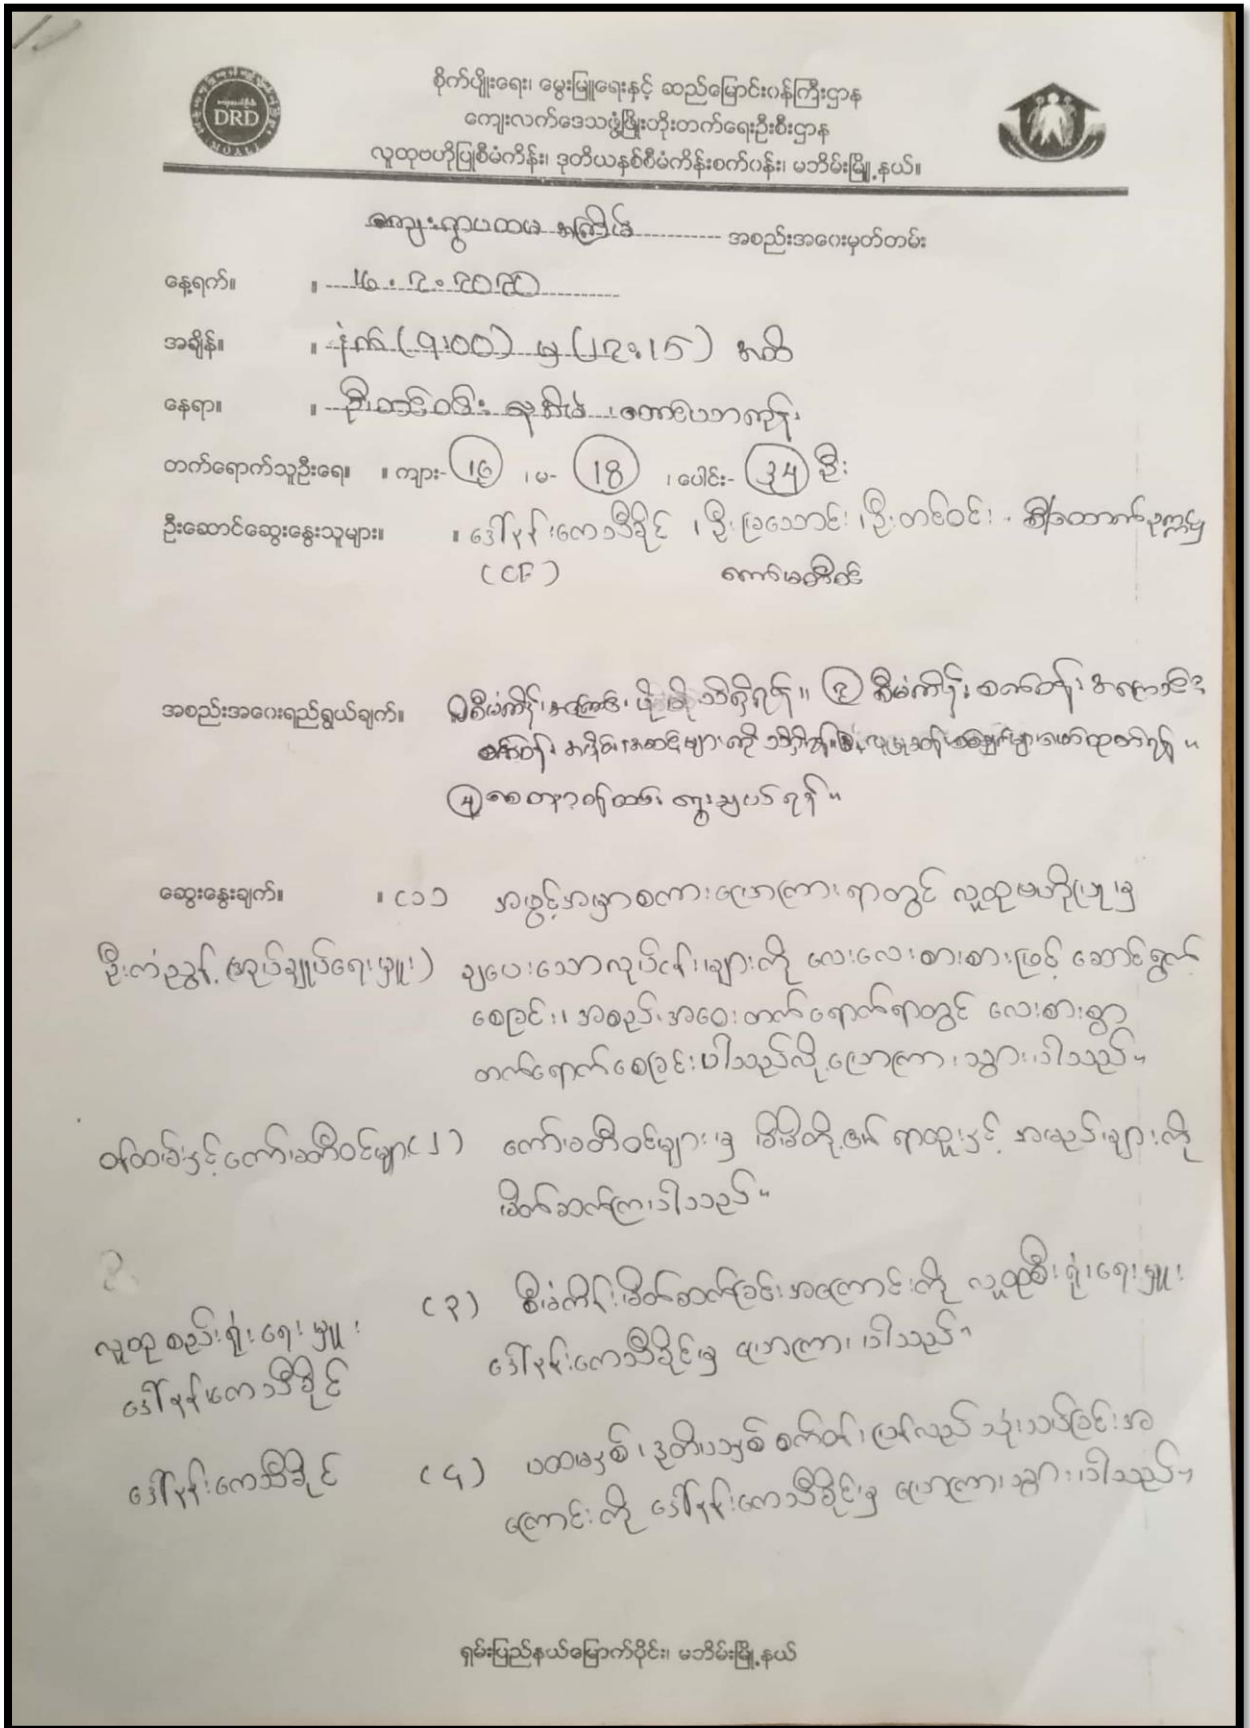 စိုက်ပျိုးရေး၊ မွေးမြူရေးနှင့် ဆည်မြောင်းဝန်ကြီးဌာန
DRD
ကျေးလက်ဒေသဖွံ့ဖြိုးတိုးတက်ရေးဦးစီးဌာန
လူထုဗဟိုပြုစီမံကိန်း၊ ဒုတိယနှစ်စီမံကိန်းစက်ဝန်း၊ မဘိမ်းမြို့နယ်။
ကျေးရွာပထမ အကြိမ် အစည်းအဝေးမှတ်တမ်း
နေ့ရက်။ ။ ၂၀၂၀
အချိန်။ ။ နံနက် (၉:၀၀) မှ (၁၂:၁၅) အထိ
နေရာ။ ။ ဦးတင်ဝင်း နေအိမ်၊
တက်ရောက်သူဦးရေ။ ။ ကျား- ၁၆ ၊ မ- ၁၈ ၊ ပေါင်း- ၃၄ ဦး
ဦးဆောင်ဆွေးနွေးသူများ။ ။ ဒေါ်နန်းကေသီခိုင် ၊ ဦးမြသောင်း ၊ ဦးတင်ဝင်း -
(CF) ကော်မတီဝင်
အစည်းအဝေးရည်ရွယ်ချက်။ စီမံကိန်းအကြောင်း သိရှိရန်။ ၂ စီမံကိန်း စက်ဝန်း အကြောင်းနှင့်
စက်ဝန်း အဆင့်များကို ဖော်ထုတ်ရန်။
၄ စေတနာ့ဝန်ထမ်း ရွေးချယ်ရန်။
ဆွေးနွေးချက်။ ။ (၁) အဖွင့်အမှာစကားပြောကြားရာတွင် လူထုဗဟိုပြုမှ
(အုပ်ချုပ်ရေးမှူး) ချပေးသောလုပ်ငန်းများကို လေးလေးစားစားဖြင့် ဆောင်ရွက်
စေခြင်း၊ အစည်းအဝေးတက်ရောက်ရာတွင် လေးစားစွာ
တက်ရောက်စေခြင်းပါသည်လို့ ပြောကြားသွားပါသည်။
ဝန်ထမ်းနှင့်ကော်မတီဝင်များ (၂) ကော်မတီဝင်များမှ မိမိတို့၏ ရာထူးနှင့် အမည်များကို
မိတ်ဆက်ကြပါသည်။
(၃) စီမံကိန်းမိတ်ဆက်ခြင်းအကြောင်းကို လူထုစည်းရုံးရေးမှူး
လူထုစည်းရုံးရေးမှူး ဒေါ်နန်းကေသီခိုင်မှ ပြောကြားပါသည်။
ဒေါ်နန်းကေသီခိုင်
ဒေါ်နန်းကေသီခိုင် (၄) ပထမနှစ်၊ ဒုတိယနှစ် စက်ဝန်းပြန်လည်သုံးသပ်ခြင်းအ
ကြောင်းကို ဒေါ်နန်းကေသီခိုင်မှ ပြောကြားသွားပါသည်။
ရှမ်းပြည်နယ်မြောက်ပိုင်း၊ မဘိမ်းမြို့နယ်